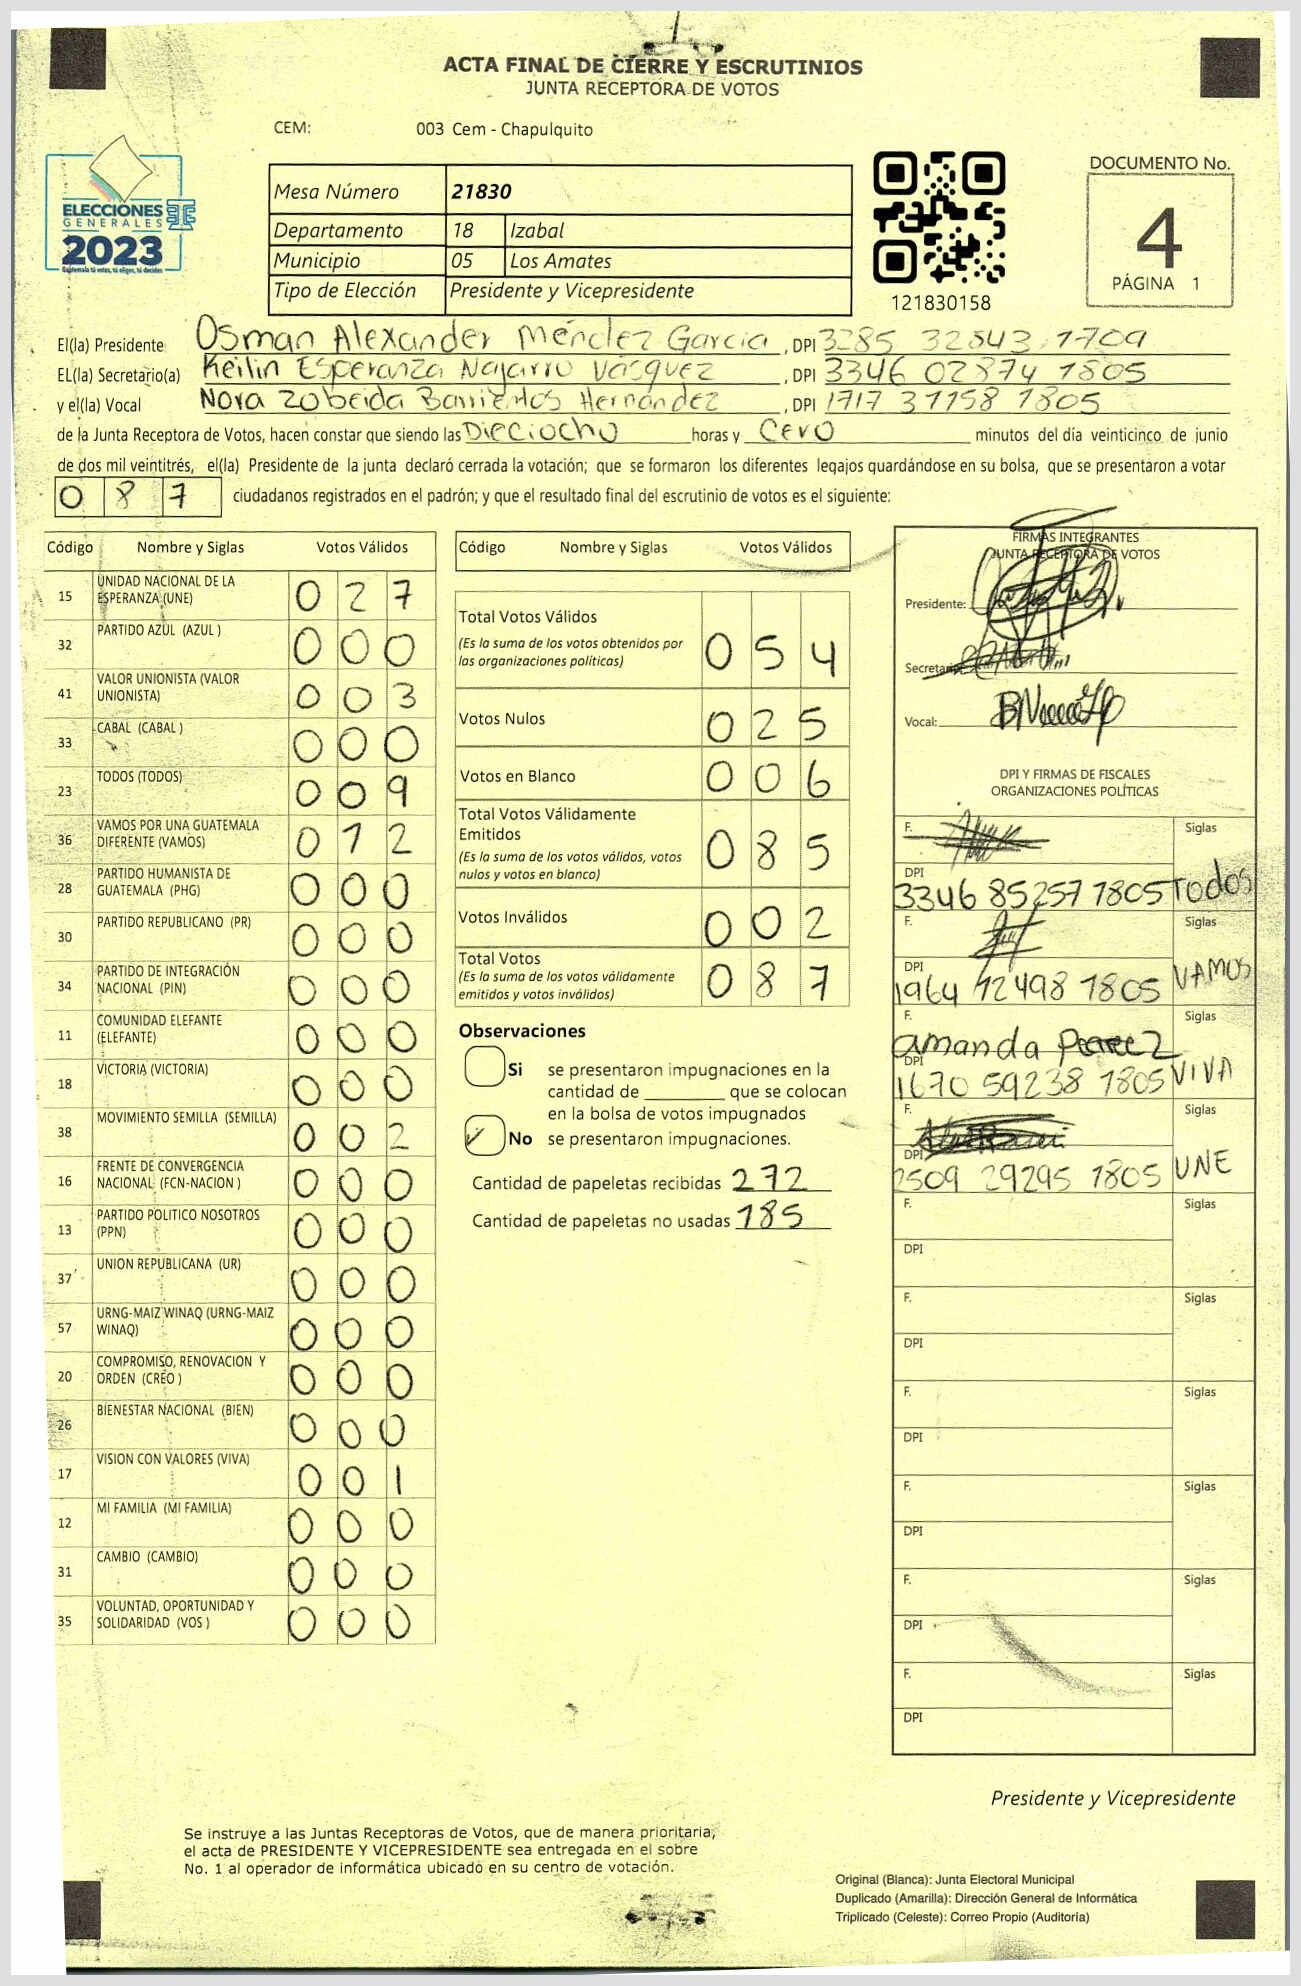 ACTA FINAL DE CIERRE Y ESCRUTINIOS
JUNTA RECEPTORA DE VOTOS
CEM: 003 Cem - Chapulquito
ELECCIONES
GENERALES
2023
Guatemala tú votas, tú eliges, tú decides
Mesa Número 21830
Departamento 18 Izabal
Municipio 05 Los Amates
Tipo de Elección Presidente y Vicepresidente
121830158
DOCUMENTO No.
4
PÁGINA 1
El(la) Presidente Osman Alexander Méndez Garcia , DPI 3285 32843 1709
EL(la) Secretario(a) Keilin Esperanza Najarro Vásquez , DPI 3346 02874 1805
y el(la) Vocal Nora Zobeida Barrientos Hernández , DPI 1717 31158 1805
de la Junta Receptora de Votos, hacen constar que siendo las Dieciocho horas y Cero minutos del día veinticinco de junio
de dos mil veintitrés, el(la) Presidente de la junta declaró cerrada la votación; que se formaron los diferentes legajos guardándose en su bolsa, que se presentaron a votar
0 8 7 ciudadanos registrados en el padrón; y que el resultado final del escrutinio de votos es el siguiente:
Código Nombre y Siglas Votos Válidos
15 UNIDAD NACIONAL DE LA ESPERANZA (UNE) 0 2 7
32 PARTIDO AZUL (AZUL ) 0 0 0
41 VALOR UNIONISTA (VALOR UNIONISTA) 0 0 3
33 CABAL (CABAL ) 0 0 0
23 TODOS (TODOS) 0 0 9
36 VAMOS POR UNA GUATEMALA DIFERENTE (VAMOS) 0 1 2
28 PARTIDO HUMANISTA DE GUATEMALA (PHG) 0 0 0
30 PARTIDO REPUBLICANO (PR) 0 0 0
34 PARTIDO DE INTEGRACIÓN NACIONAL (PIN) 0 0 0
11 COMUNIDAD ELEFANTE (ELEFANTE) 0 0 0
18 VICTORIA (VICTORIA) 0 0 0
38 MOVIMIENTO SEMILLA (SEMILLA) 0 0 2
16 FRENTE DE CONVERGENCIA NACIONAL (FCN-NACION ) 0 0 0
13 PARTIDO POLITICO NOSOTROS (PPN) 0 0 0
37 UNION REPUBLICANA (UR) 0 0 0
57 URNG-MAIZ WINAQ (URNG-MAIZ WINAQ) 0 0 0
20 COMPROMISO, RENOVACION Y ORDEN (CREO ) 0 0 0
26 BIENESTAR NACIONAL (BIEN) 0 0 0
17 VISION CON VALORES (VIVA) 0 0 1
12 MI FAMILIA (MI FAMILIA) 0 0 0
31 CAMBIO (CAMBIO) 0 0 0
35 VOLUNTAD, OPORTUNIDAD Y SOLIDARIDAD (VOS ) 0 0 0
Código Nombre y Siglas Votos Válidos
Total Votos Válidos
(Es la suma de los votos obtenidos por
las organizaciones políticas) 0 5 4
Votos Nulos 0 2 5
Votos en Blanco 0 0 6
Total Votos Válidamente
Emitidos
(Es la suma de los votos válidos, votos
nulos y votos en blanco) 0 8 5
Votos Inválidos 0 0 2
Total Votos
(Es la suma de los votos válidamente
emitidos y votos inválidos) 0 8 7
Observaciones
Si se presentaron impugnaciones en la
cantidad de ________ que se colocan
en la bolsa de votos impugnados
✓ No se presentaron impugnaciones.
Cantidad de papeletas recibidas 272
Cantidad de papeletas no usadas 185
FIRMAS INTEGRANTES
JUNTA RECEPTORA DE VOTOS
Presidente:
Secretario:
Vocal:
DPI Y FIRMAS DE FISCALES
ORGANIZACIONES POLÍTICAS
F. Siglas
DPI
3346 85257 1805 TODOS
F. Siglas
DPI
1964 12498 1805 VAMOS
F. Siglas
amanda Perez
DPI
1670 59238 1805 VIVA
F. Siglas
DPI
2509 29295 1805 UNE
F. Siglas
DPI
F. Siglas
DPI
F. Siglas
DPI
F. Siglas
DPI
F. Siglas
DPI
F. Siglas
DPI
Presidente y Vicepresidente
Se instruye a las Juntas Receptoras de Votos, que de manera prioritaria,
el acta de PRESIDENTE Y VICEPRESIDENTE sea entregada en el sobre
No. 1 al operador de informática ubicado en su centro de votación.
Original (Blanca): Junta Electoral Municipal
Duplicado (Amarilla): Dirección General de Informática
Triplicado (Celeste): Correo Propio (Auditoría)